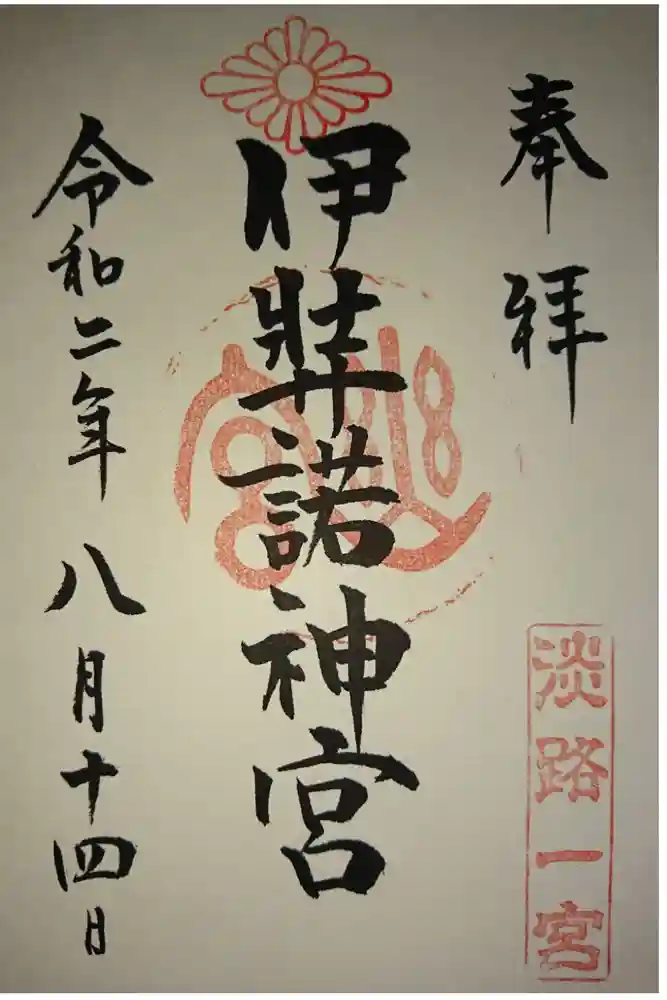 奉拝
淡路一宮
伊弉諾神宮
令和二年八月十四日